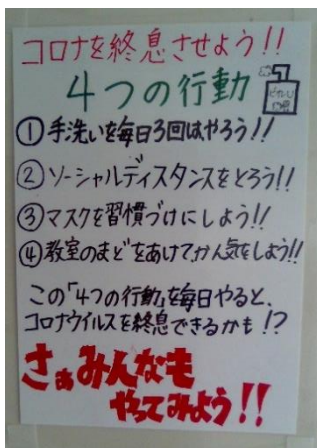 コロナを終息させよう!!
4つの行動
①手洗いを毎日3回はやろう!!
②ソーシャルディスタンスをとろう!!
③マスクを習慣づけにしよう!!
④教室のまどをあけてかん気をしよう!!
この「4つの行動」を毎日やると、
コロナウイルスを終息できるかも!?
さぁみんなも
やってみよう!!